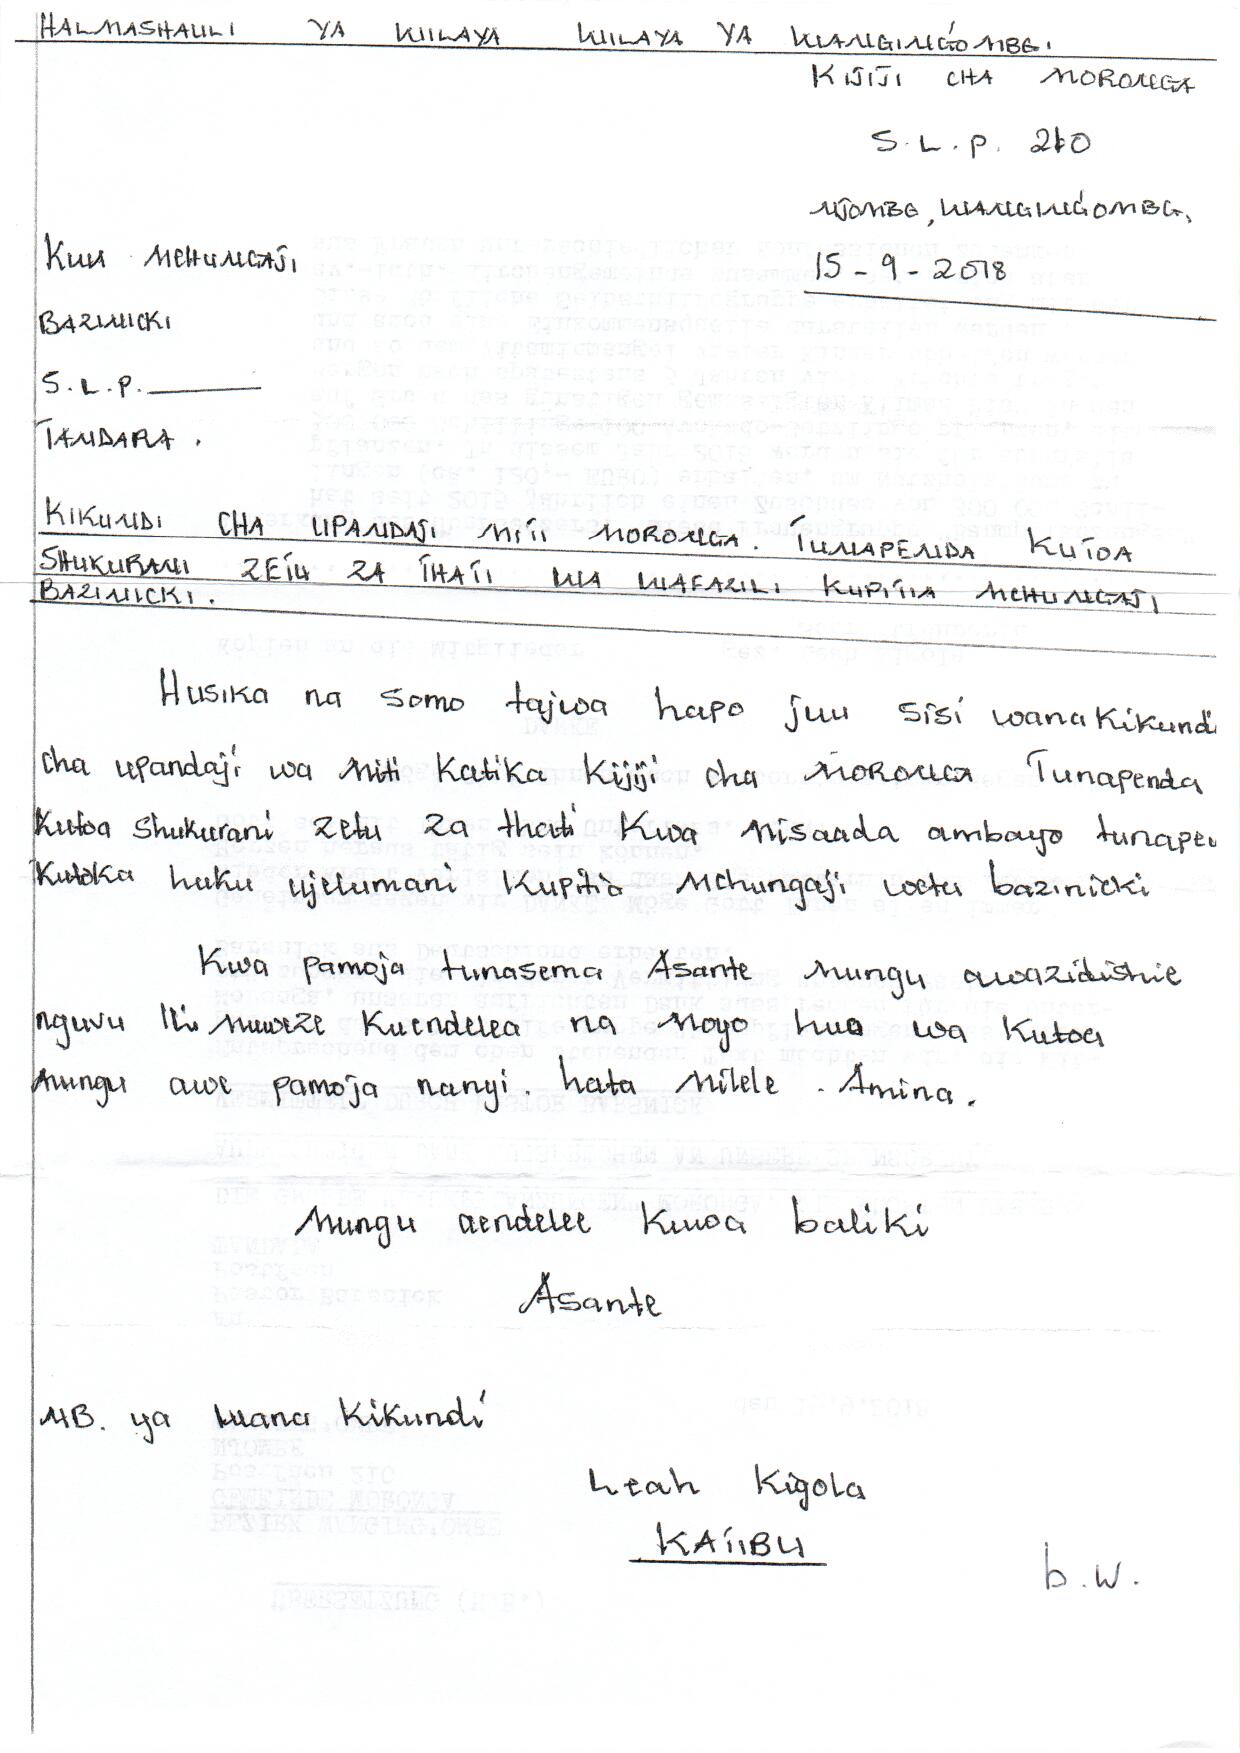 HALMASHAULI YA WIILAYA WILAYA YA WANGINGÓMBE.
KIJIJI CHA MORONGA
S.L.P. 210
NJOMBE, WANGINGÓMBE,
15-9-2018
KWA MCHUNGAJI
BAZINICKI
S.L.P.
TANDARA.
KIKUNDI CHA UPANDAJI MITI MORONGA. TUNAPENDA KUTOA
SHUKURANI ZETU ZA THATI WA WAFAZILI KUPITIA MCHUNGAJI
BAZINICKI.
Husika na somo tajwa hapo juu sisi wanaKikundi
cha upandaji wa Miti Katika Kijiji cha MORONGA Tunapenda
Kutoa Shukurani zetu za thati Kwa Misaada ambayo tunape
Kutoka huku ujelumani Kupitia Mchungaji wetu bazinicki
Kwa pamoja tunasema Asante Mungu awazidishie
nguvu Ili Muweze Kuendelea na Moyo huo wa Kutoa
Mungu awe pamoja nanyi. hata Milele. Amina.
Mungu aendelee Kuwa baliki
Asante
NB. ya Wana Kikundi
Leah Kigola
KATIBU
b.w.